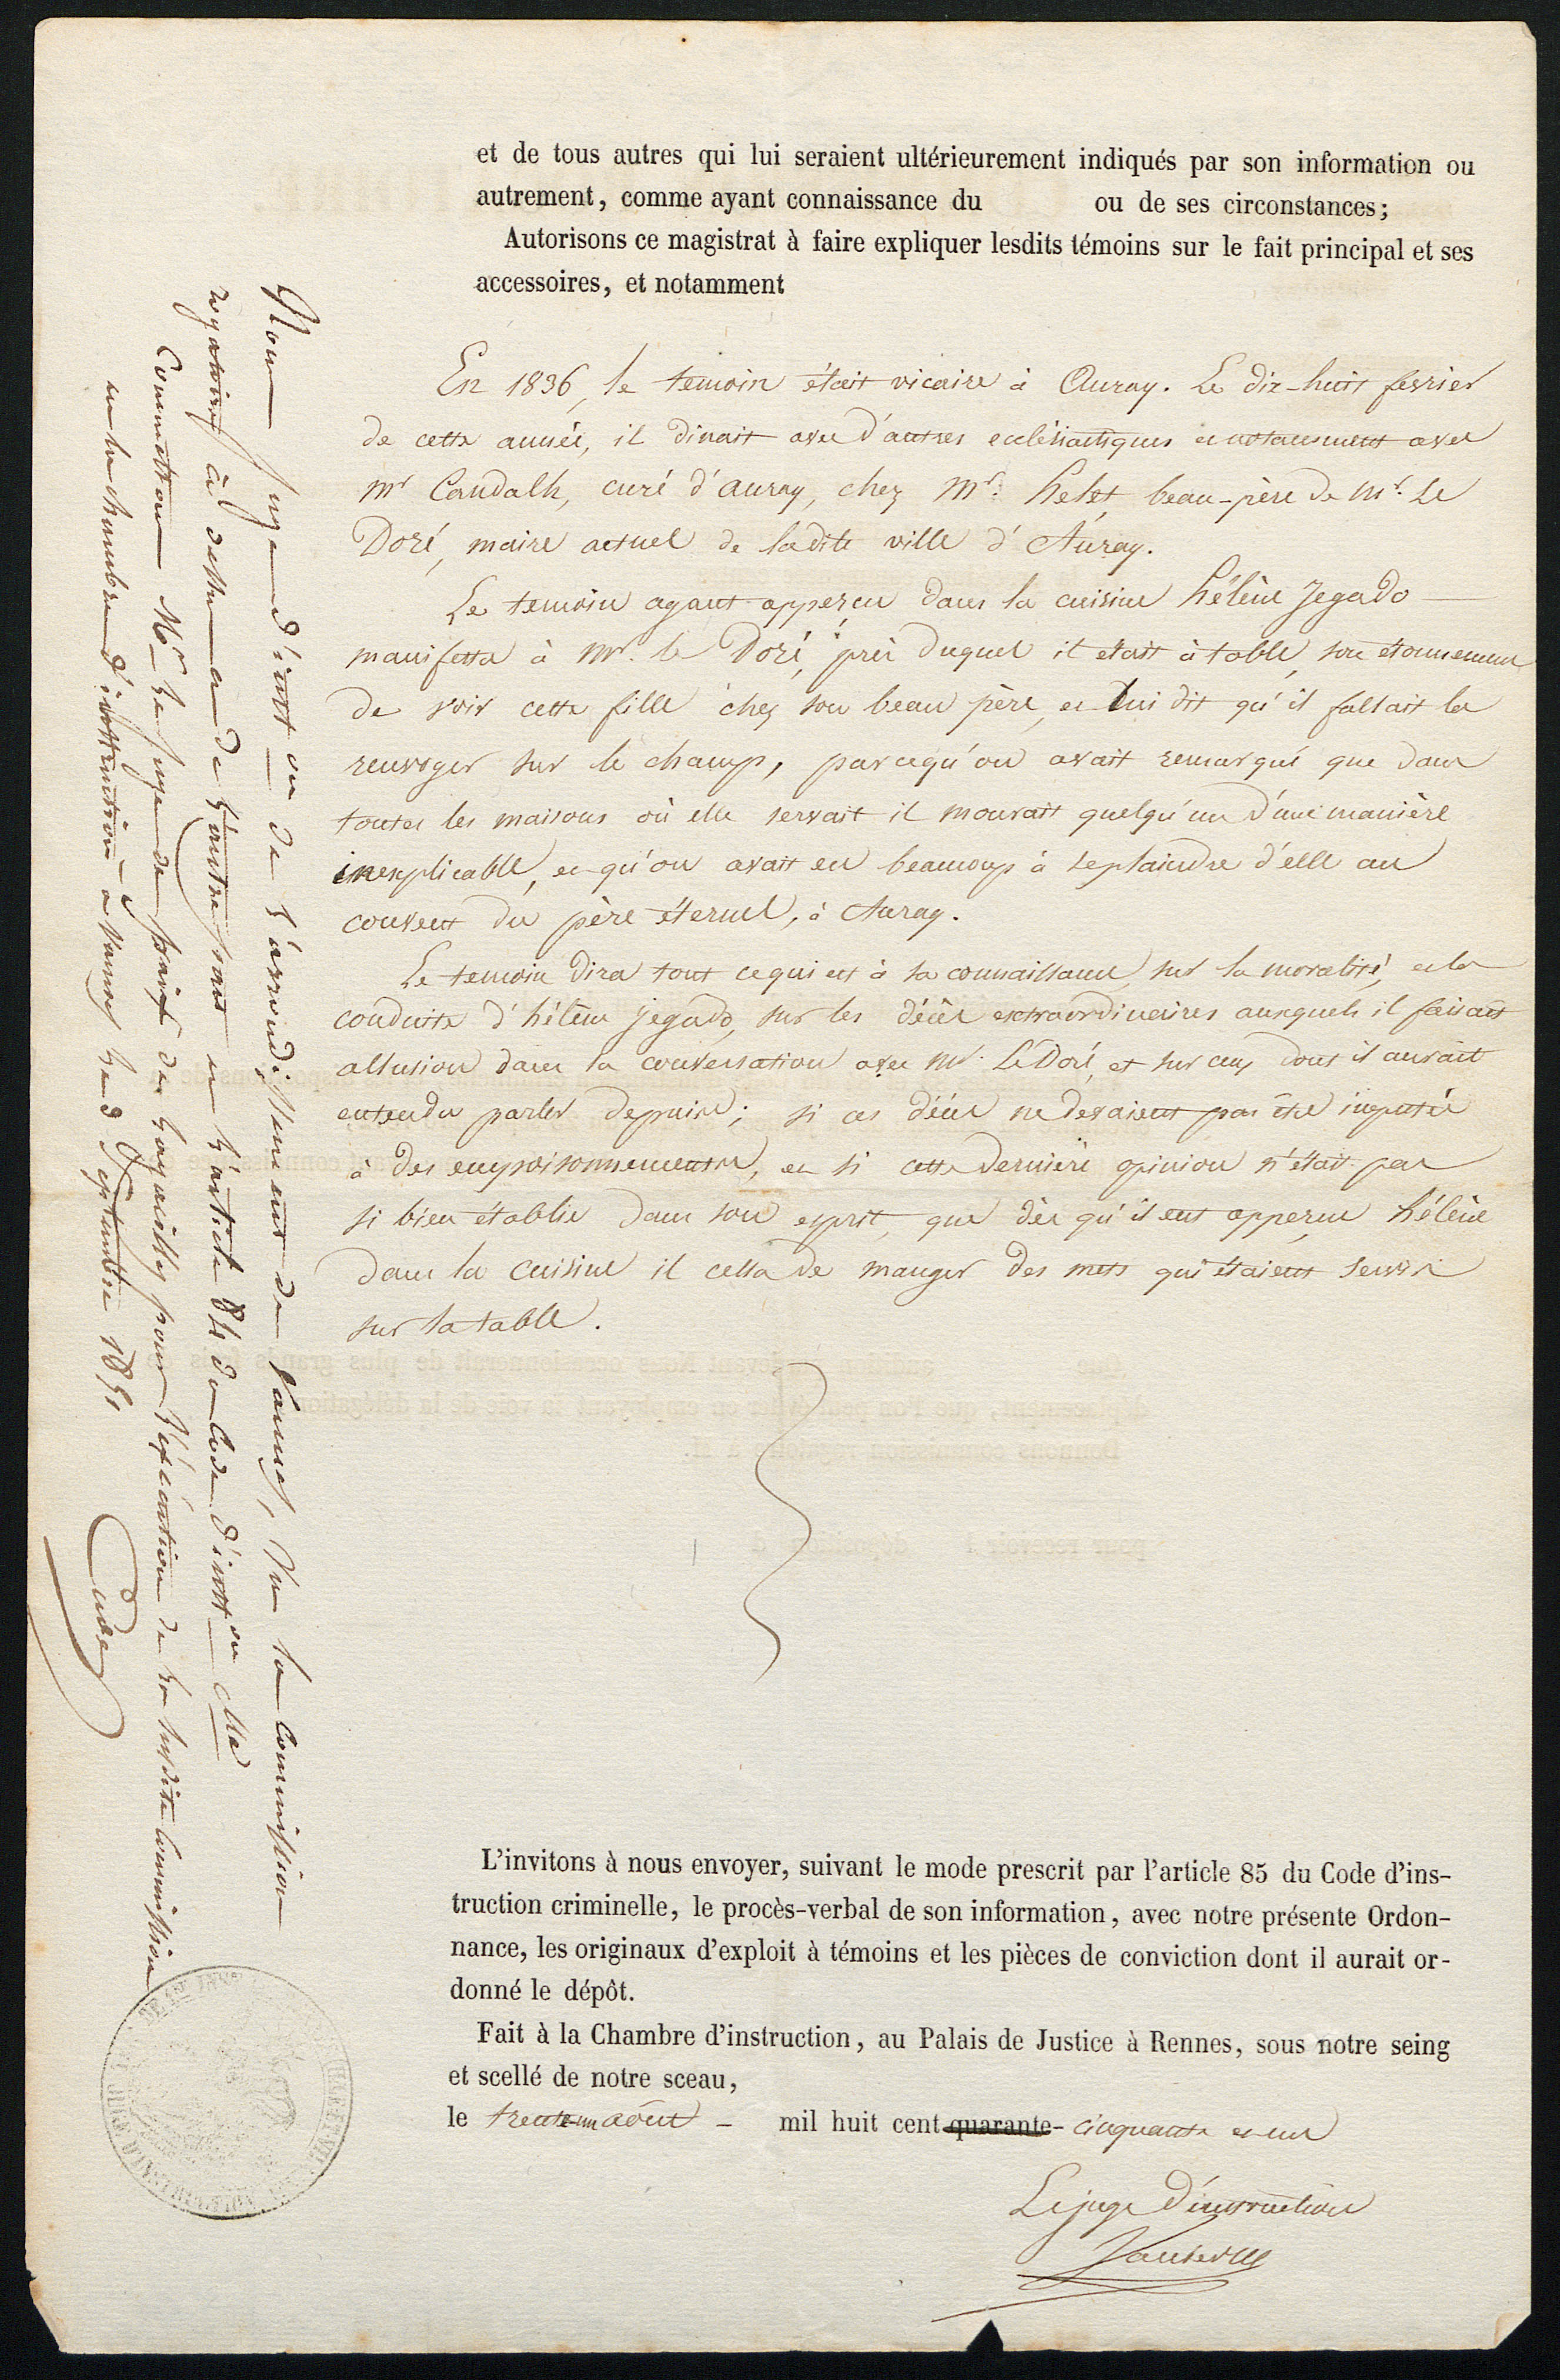 et de tous autres qui lui seraient ultérieurement indiqués par son information ou
autrement, comme ayant connaissance du ou de ses circonstances;
Autorisons ce magistrat à faire expliquer lesdits témoins sur le fait principal et ses
accessoires, et notamment
En 1836, le temoin était vicaire à Auray. Le dix-huit fevrier
de cette année, il dinait avec d'autres ecclésiastiques et notamment avec
mr Condalh, curé d'auray, chez Mr. hetet, beau-père de mr. Le
Doré, maire actuel de ladite ville d'Auray.
Le temoin ayant apperçu dans la cuisine hélène Jegado
manifesta à Mr. le Doré, près duquel il etait à table, son etonnement
de voir cette fille chez son beau père, et lui dit qu'il fallait la
renvoyer sur le champ, parcequ'on avait remarqué que dans
toutes les maisons où elle servait il mourait quelqu'un d'une manière
inexplicable, et qu'on avait eu beaucoup à se plaindre d'elle au
couvent du père éternel, à Auray.
Le temoin dira tout ce qui est à sa connaissance sur la moralité, et la
conduite d'hélène jegado, sur les décès extraordinaires auxquels il faisait
allusion dans la conversation avec mr. Le Doré, et sur ceux dont il aurait
entendu parler depuis; si ces décès ne devaient pas être imputés
à des empoisonnements, et si cette dernière opinion n'était pas
si bien établie dans son esprit, que dès qu'il eut apperçu hélène
dans la cuisine il cessa de manger des mets qui étaient servis
sur la table.
L'invitons à nous envoyer, suivant le mode prescrit par l'article 85 du Code d'ins-
truction criminelle, le procès-verbal de son information, avec notre présente Ordon-
nance, les originaux d'exploit à témoins et les pièces de conviction dont il aurait or-
donné le dépôt.
Fait à la Chambre d'instruction, au Palais de Justice à Rennes, sous notre seing
et scellé de notre sceau,
le trente-un août - mil huit cent quarante- cinquante et un
Le juge d'instruction
Nous juge d'inston de l'arrondissement de Vannes, vu la commission
rogatoire ci dessus et de l'autre part et l'article 84 du Code d'inston Clle
Commettons Mr. le juge de paix de pour l'exécution de la susdite commission
en la chambre d'instruction à vannes le 3 septembre 1851